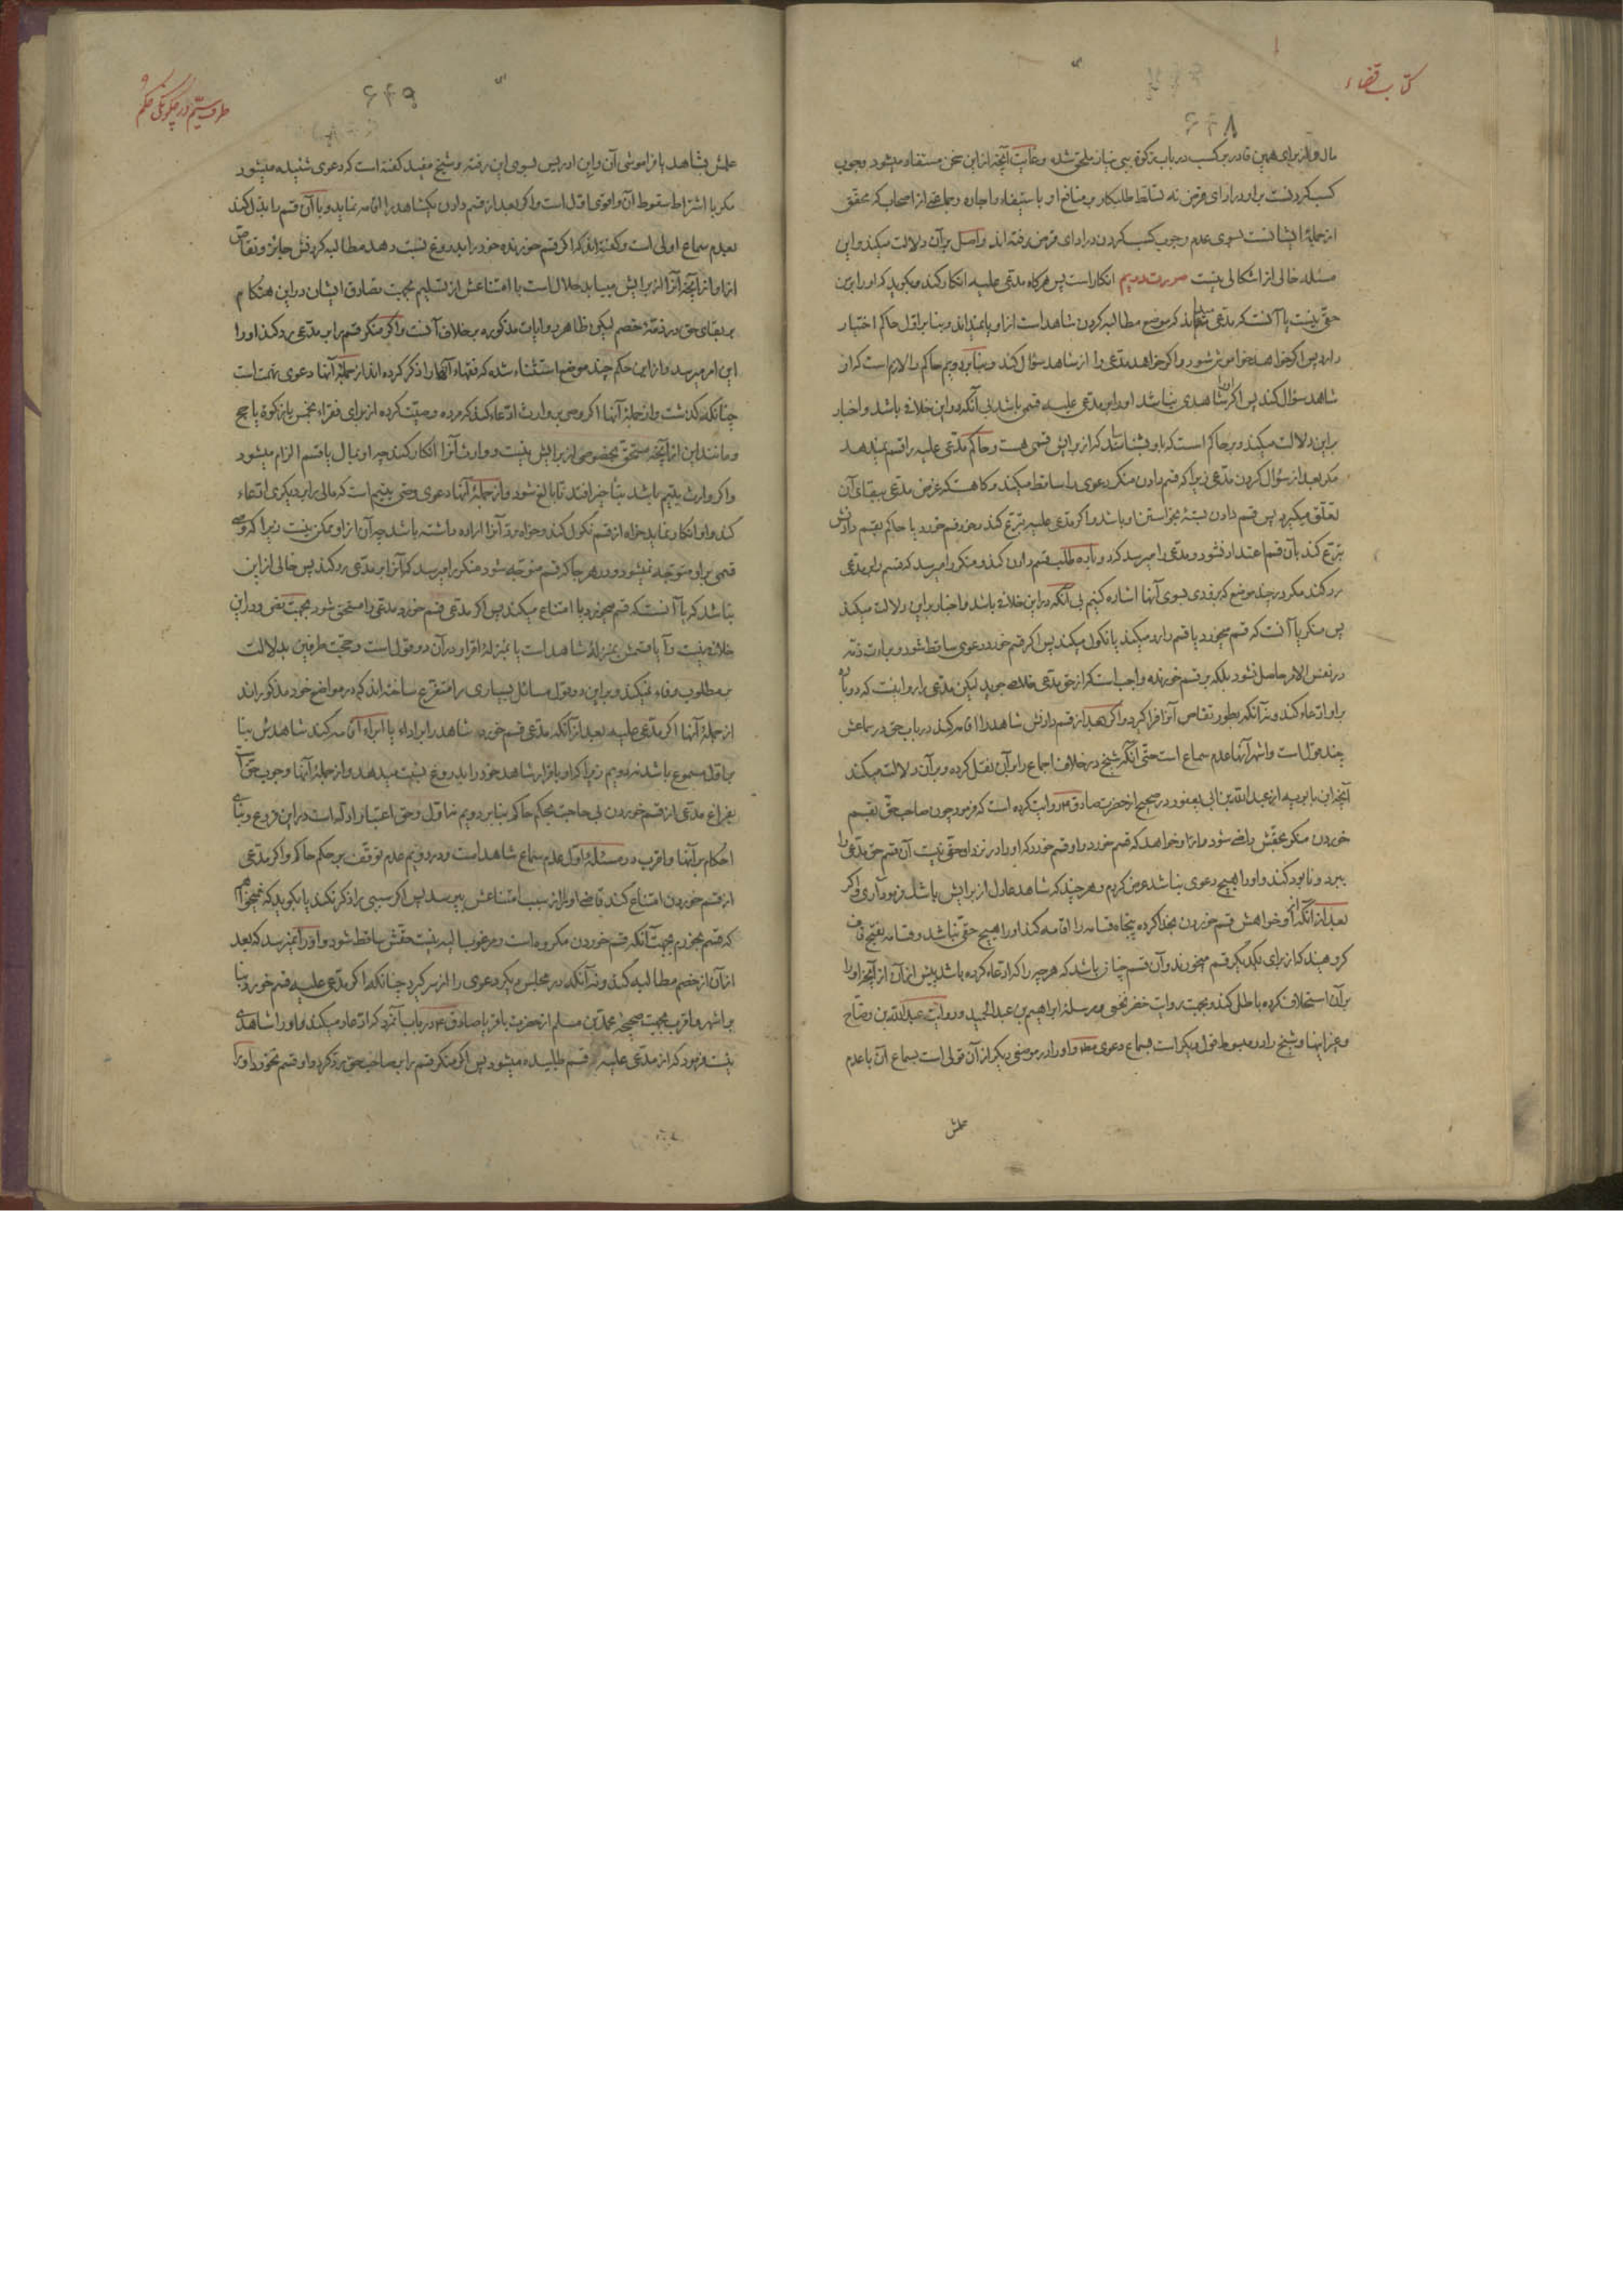 کتاب قضاء
۶۴۸
مال و از برای همین قادر بر کسب در باب زکوة ببی نیاز ملحق شده و غایت آنچه از این سخن مستفاد میشود وجوب
کسب کردنست بر او در ادای قرض نه تسلط طلبکار بر منافع او باستیفاء و اجاره و جماعتی از اصحاب که محقق
از جملهٔ ایشانست بسوی عدم وجوب کسب کردن در ادای قرض رفته‌اند و اصل بر آن دلالت میکند و این
مسئله خالی از اشکالی نیست صورت دویم انکار است پس هرگاه مدّعی علیه انکار کند و بگوید که او را بر من
حقّی نیست یا آنست که مدّعی میداند که موضع مطالبه کردن شاهد است از او یا نمیداند و بنا بر اوّل حاکم اختیار
دارد پس اگر خواهد خاموش شود و اگر خواهد مدّعی را از شاهد سؤال کند و بنا بر دویم حاکم را لازم است که از او
شاهد سؤال کند پس اگر او را شاهدی نباشد او را بر مدّعی علیه قسمی باشد بی آنکه در این خلاف باشد و اخبار
بر این دلالت میکند و بر حاکم است که باو بشناساند که از برایش قسمی هست و حاکم مدّعی علیه را قسم نمیدهد
مگر بعد از سؤال کردن مدّعی زیرا که قسم دادن منکر دعوی را ساقط میکند و گاهست که غرض مدّعی ببقای آن
تعلّق میگیرد پس قسم دادن بستهٔ بخواستن او باشد و اگر مدّعی علیه تبرّع کند و خود قسم خورد یا حاکم بقسم دادنش
تبرّع کند بآن قسم اعتداد نشود و مدّعی را میرسد که دوباره طلب قسم دادن کند و منکر را میرسد که قسم را بر مدّعی
رد کند مگر در چند موضع که بزودی بسوی آنها اشاره کنیم بی آنکه در این خلاف باشد و اخبار بر این دلالت میکند
پس منکر یا آنست که قسم میخورد یا قسم را رد میکند یا نکول میکند پس اگر قسم خورد دعوی ساقط شود و براءت ذمّه
در نفس الامر حاصل نشود بلکه بر قسم خورنده واجب است که از حق مدّعی خلاص جوید لیکن مدّعی را روا نیست که دوباره
بر او ادّعاء کند و نه آنکه بطور تقاص آنرا فرا گیرد و اگر بعد از قسم دادنش شاهد را اقامه کند در باب حق در سماعش
چند قول است و اشهر آنها عدم سماع است حتّی آنکه شیخ در خلاف اجماع را بر آن نقل کرده و بر آن دلالت میکند
آنچه ابن بابویه از عبد اللّه بن ابی یعفور در صحیح از حضرت صادق ع روایت کرده است که فرمود چون صاحب حقّ بقسم
خوردن منکر بحقّش راضی شود و از او خواهد که قسم خورد و او قسم خورد که او را در نزد او حقّی نیست آن قسم حق مدّعی را
ببرد و نابود کند و او را هیچ دعوی نباشد عرض کردم و هر چند که شاهد عادل از برایش باشد فرمود آری و اگر
بعد از آنکه از او خواهش قسم خوردن بخدا کرده پنجاه قسامه را اقامه کند او را هیچ حقّی نباشد و قسامه بفتح قاف
گروهیند که از برای یکدیگر قسم میخورند و آن قسم چنان باشد که هر چه را که ادّعاء کرده باشد پیش از آن از آنچه او را
بر آن استحلاف کرده باطل کند و بجهت روایت خضر نخعی و مرسلهٔ ابراهیم بن عبد الحمید و روایت عبد اللّه بن وضّاح
و غیر اینها و شیخ را در مبسوط قول دیگر است بسماع دعوی مطلقا و او را در موضعی دیگر از آن قولی است بسماع آن با عدم
علمش
طرف سیّم در چگونگی حکم
۶۴۹
علمش بشاهد یا فراموشی آن و ابن ادریس بسوی این رفته و شیخ مفید گفته است که دعوی شنیده میشود
مگر با اشتراط سقوط آن و اقوی اوّل است و اگر بعد از قسم دادن یکشاهد را اقامه نماید و با آن قسم را بذل کند
بعدم سماع اولی است و گفته‌اند که اگر قسم خورنده خود را بدروغ نسبت دهد مطالبه کردنش جائز و تقاص
از او از آنچه آنرا از برایش میباید حلال است با امتناعش از تسلیم بجهت تصادق ایشان در این هنگام
بر بقای حق در ذمّهٔ خصم لیکن ظاهر روایات مذکوره بر خلاف آنست و اگر منکر قسم را بر مدّعی رد کند او را
این امر میرسد و از این حکم چند موضع استثناء شده که فقهاء آنها را ذکر کرده‌اند از جملهٔ آنها دعوی تهمت است
چنانکه گذشت و از جملهٔ آنها اگر وصی بر وارث ادّعاء کند که مرده وصیّت کرده از برای فقراء بخمس یا زکوة یا حج
و مانند این از آنچه مستحقّ بخصوصی از برایش نیست و وارث آنرا انکار کند چه او بمال یا قسم الزام میشود
و اگر وارث یتیم باشد بتأخیر افتد تا بالغ شود و از جملهٔ آنها دعوی وصی یتیم است که مالی را بر دیگری ادّعاء
کند و او انکار نماید خواه از قسم نکول کند و خواه رد آنرا اراده داشته باشد چه آن از او ممکن نیست زیرا که وصی
قسمی بر او متوجّه نمیشود و در هر جا که قسم متوجّه شود منکر را میرسد که آنرا بر مدّعی رد کند پس خالی از این
نباشد که یا آنست که قسم میخورد یا امتناع میکند پس اگر مدّعی قسم خورد مدّعی را مستحق شود بجهت نص و در این
خلاف نیست و آیا قسمش بمنزلهٔ شاهد است یا بمنزلهٔ اقرار در آن دو قول است و حجّت طرفین بدلالت
بمطلوب وفاء نمیکند و بر این دو قول مسائل بسیاری را متفرّع ساخته‌اند که در مواضع خود مذکوراند
از جملهٔ آنها اگر مدّعی علیه بعد از آنکه مدّعی قسم خورد شاهد را بر اداء یا ابراء اقامه کند شاهدش بنا
بر اوّل مسموع باشد نه دویم زیرا که او باقرار شاهد خود را بدروغ نسبت میدهد و از جملهٔ آنها وجوب حق است
بفراغ مدّعی از قسم خوردن بی حاجت بحکم حاکم بنا بر دویم نه اوّل و حق اعتبار ادلّه است در این فروع و بنای
احکام بر آنها و اقرب در مسئلهٔ اوّل عدم سماع شاهد است و در دویم عدم توقّف بر حکم حاکم و اگر مدّعی
از قسم خوردن امتناع کند قاضی او را از سبب امتناعش بپرسد پس اگر سببی را ذکر نکند یا بگوید که نمیخواهم
که قسم بخورم بجهت آنکه قسم خوردن مکروه است و مرغوب الیه نیست حقّش ساقط شود و او را نمیرسد که بعد
از آن از خصم مطالبه کند و نه آنکه در مجلس دیگر دعوی را از سر گیرد چنانکه اگر مدّعی علیه قسم خورد بنا
بر اشهر و اقرب بجهت صحیحهٔ محمّد بن مسلم از حضرت باقر یا صادق ع در باب آنمرد که ادّعاء میکند و او را شاهدی
نیست فرمود که از مدّعی علیه قسم طلبیده میشود پس اگر منکر قسم را بر صاحب حق رد کرد و او قسم نخورد او را